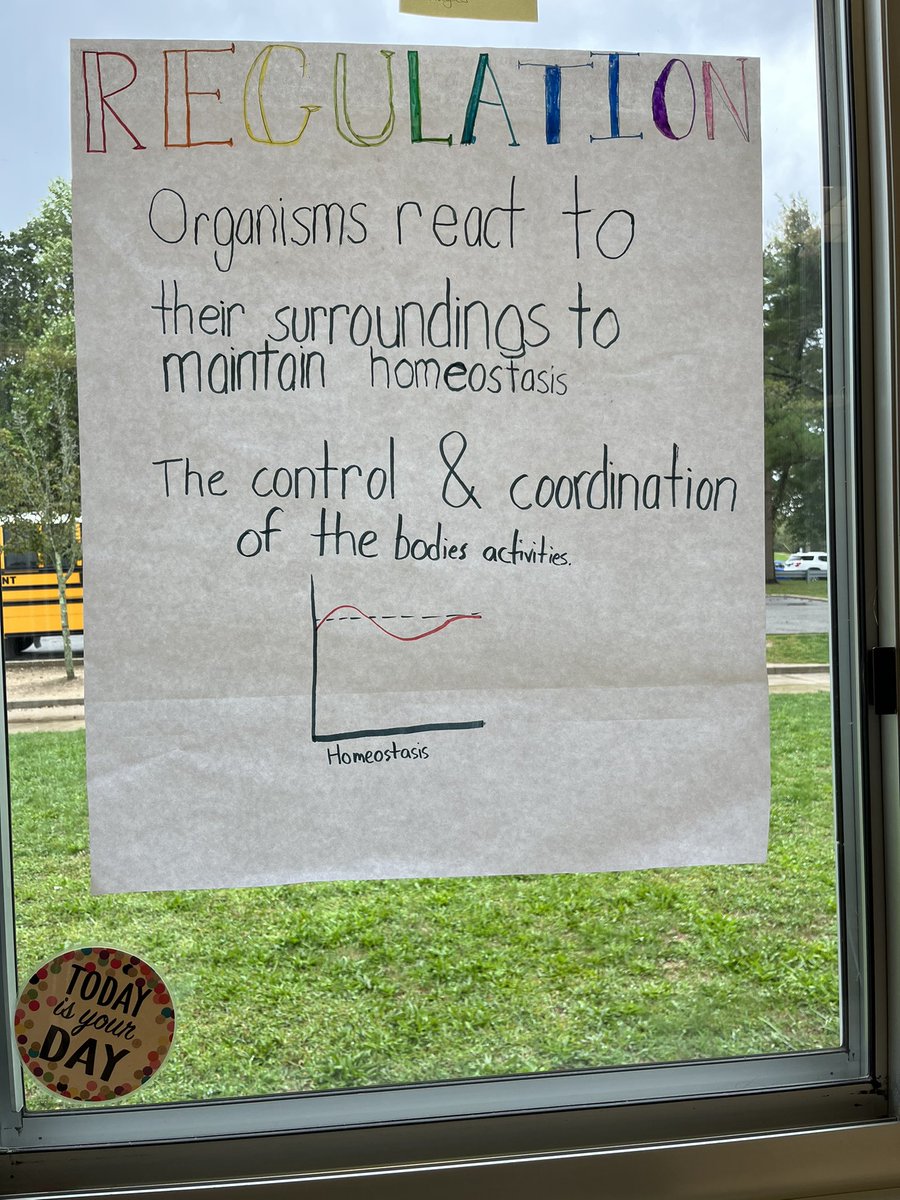 REGULATION
Organisms react to
their surroundings to
maintain homeostasis
The control & coordination
of the bodies activities.
Homeostasis
NT
TODAY
is your
DAY